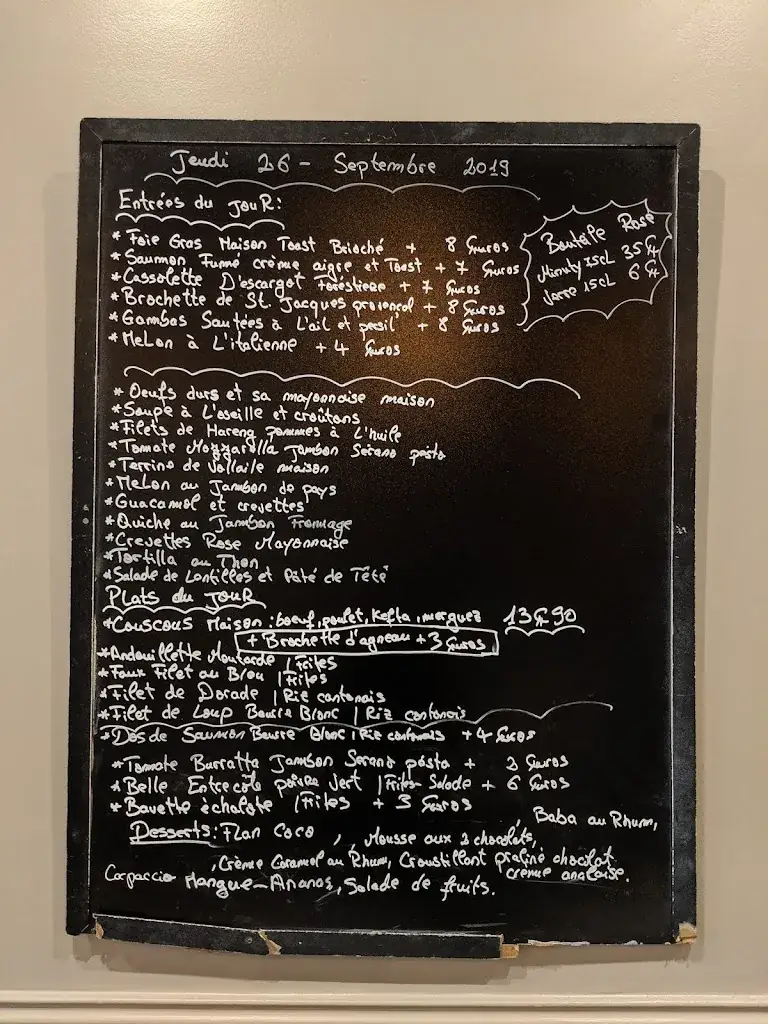 Jeudi 26 - Septembre 2019
Entrées du jouR:
* Foie Gras Maison Toast Brioché + 8 Euros
* Saumon Fumé crème aigre et Toast + 7 Euros
* Cassolette D'escargot Forestiere + 7 Euros
* Brochette de St. Jacques provençal + 8 Euros
* Gambas Sautées à L'ail et persil + 8 Euros
* MeLon à L'italienne + 4 Euros
Bouteille Rosé
Minuty 75cL 35 €
Verre 15cL 6 €
* Oeufs durs et sa mayonnaise maison
* Soupe à L'oseille et croûtons
* Filets de Hareng pommes à L'huile
* Tomate Mozzarella Jambon Serano pesto
* Terrine de Vollaile maison
* MeLon au Jambon de pays
* Guacamol et crevettes
* Quiche au Jambon Fromage
* Crevettes Rose Mayonnaise
* Tortilla au Thon
* Salade de Lentilles et Pâté de Tête
Plats du JouR
* Couscous Maison: boeuf, poulet, Kefta, merguez 13€90
+ Brochette d'agneau + 3 Euros
* Andouillette Moutarde / Frites
* Faux Filet au Bleu / Frites
* Filet de Dorade / Riz cantonais
* Filet de Loup Beurre Blanc / Riz cantonais
* Dos de Saumon Beurre Blanc / Riz cantonais + 4 Euros
* Tomate Burratta Jambon Serano pesto + 3 Euros
* Belle Entrecote poivre vert / Frites-Salade + 6 Euros
* Bavette échalote / Frites + 3 Euros
Desserts: Flan Coco, Mousse aux 3 chocolats, Baba au Rhum,
, Crème Caramel au Rhum, Croustillant praliné chocolat crème anglaise.
Carpaccio Mangue-Ananas, Salade de fruits.